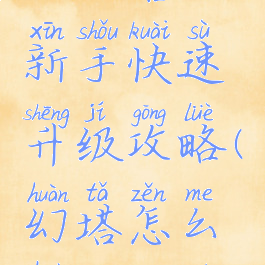 xīn shǒu kuài sù
新手快速
shēng jí gōng lüè
升级攻略(
huàn tǎ zěn me
幻塔怎么